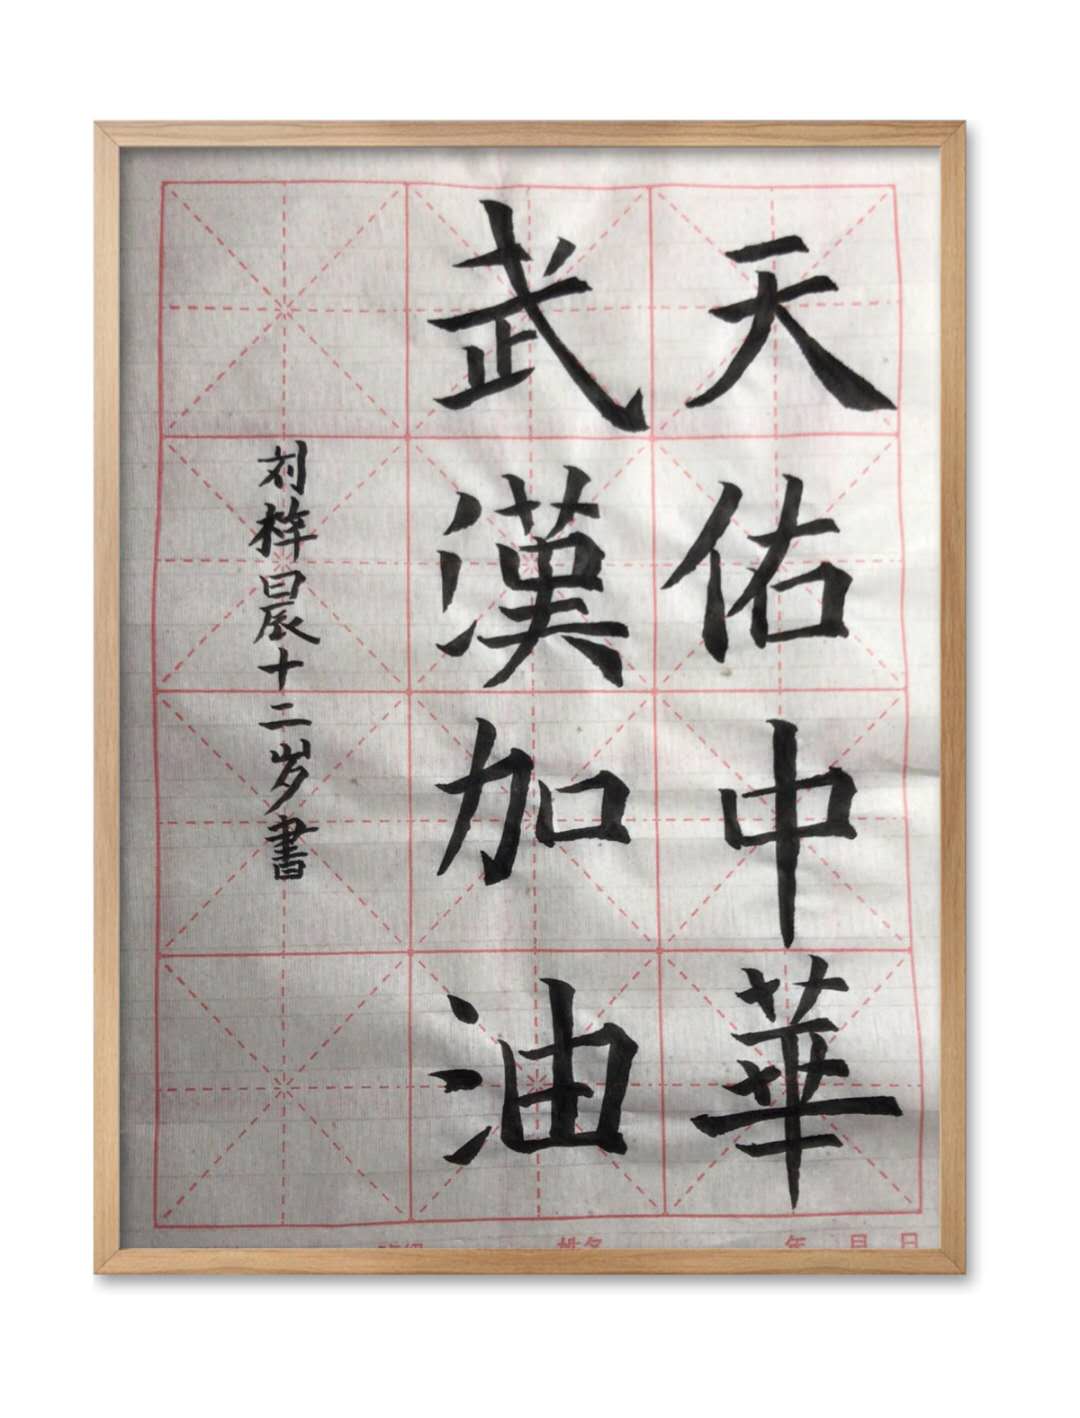 天佑中華
武漢加油
刘梓晨十二岁書
姓名
年 月 日